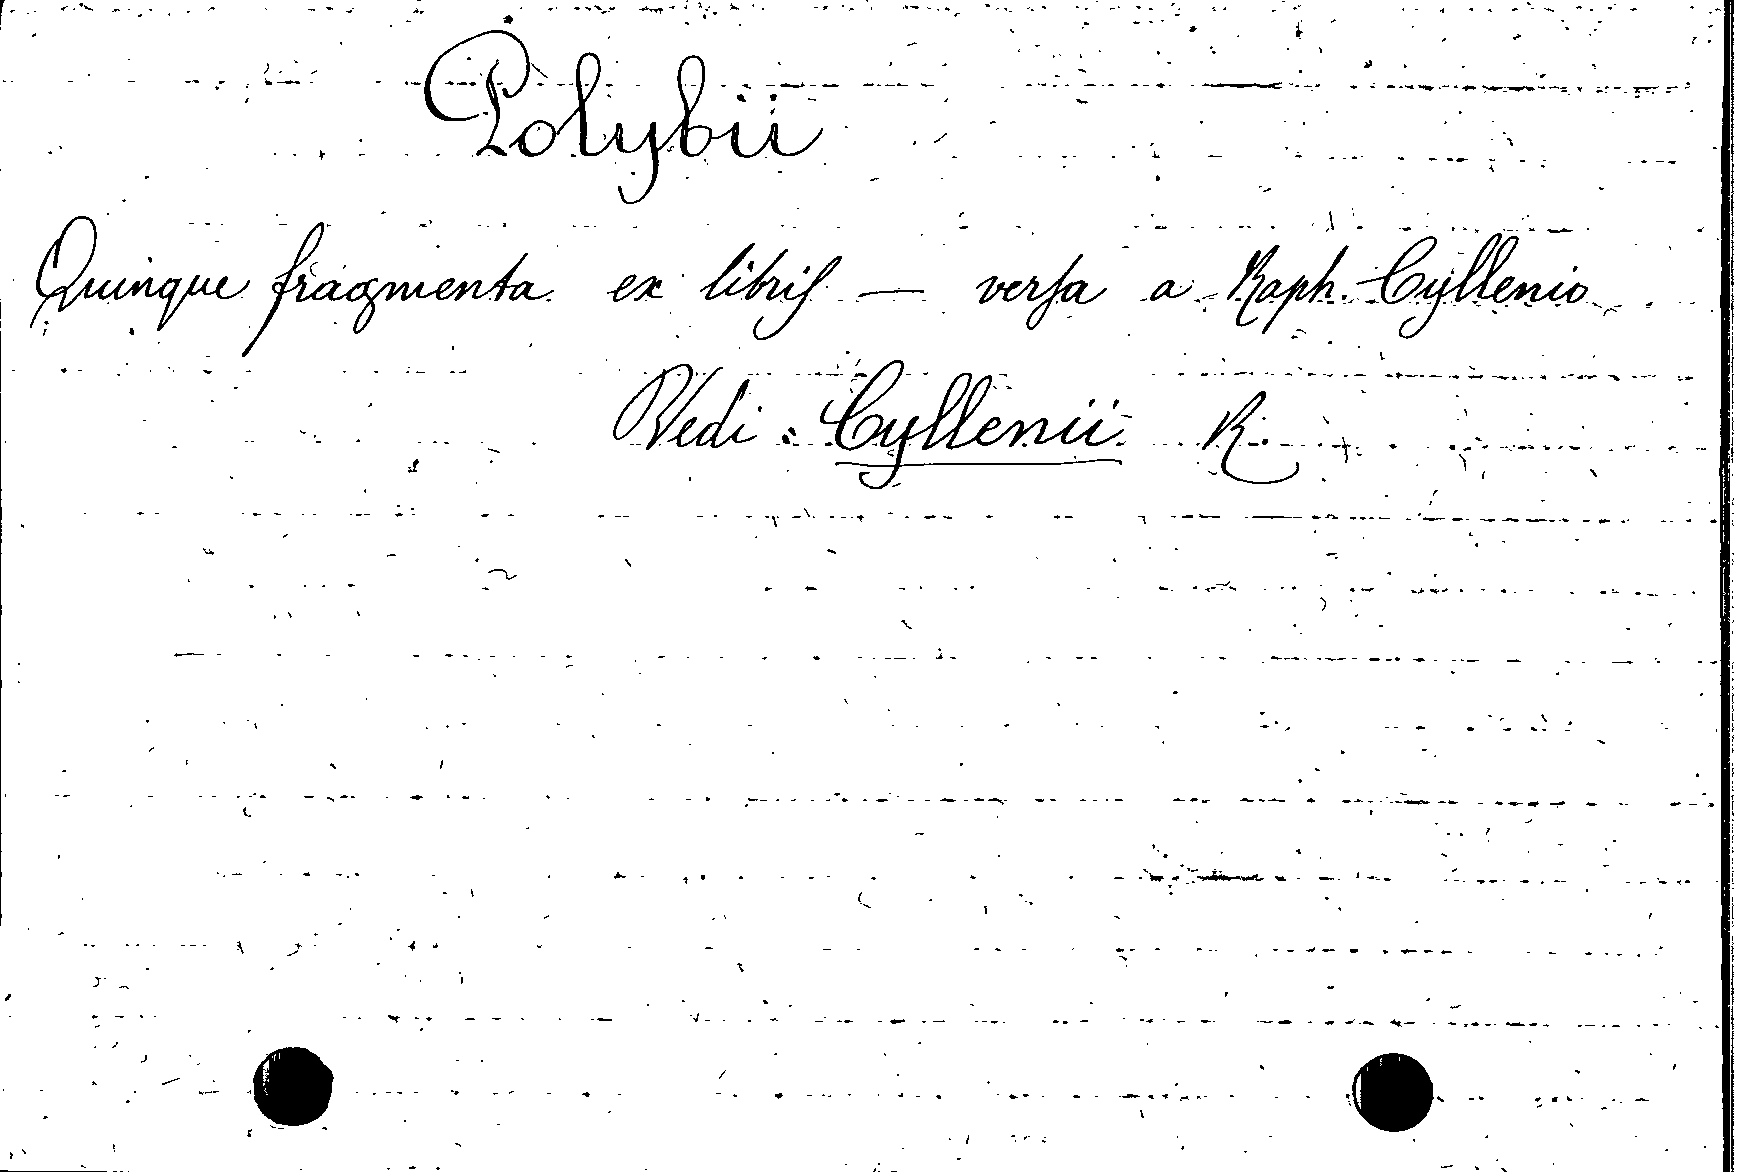 Polybii
Quinque fragmenta ex libris — versa a Raph. Cyllenio
Vedi: Cyllenii R.